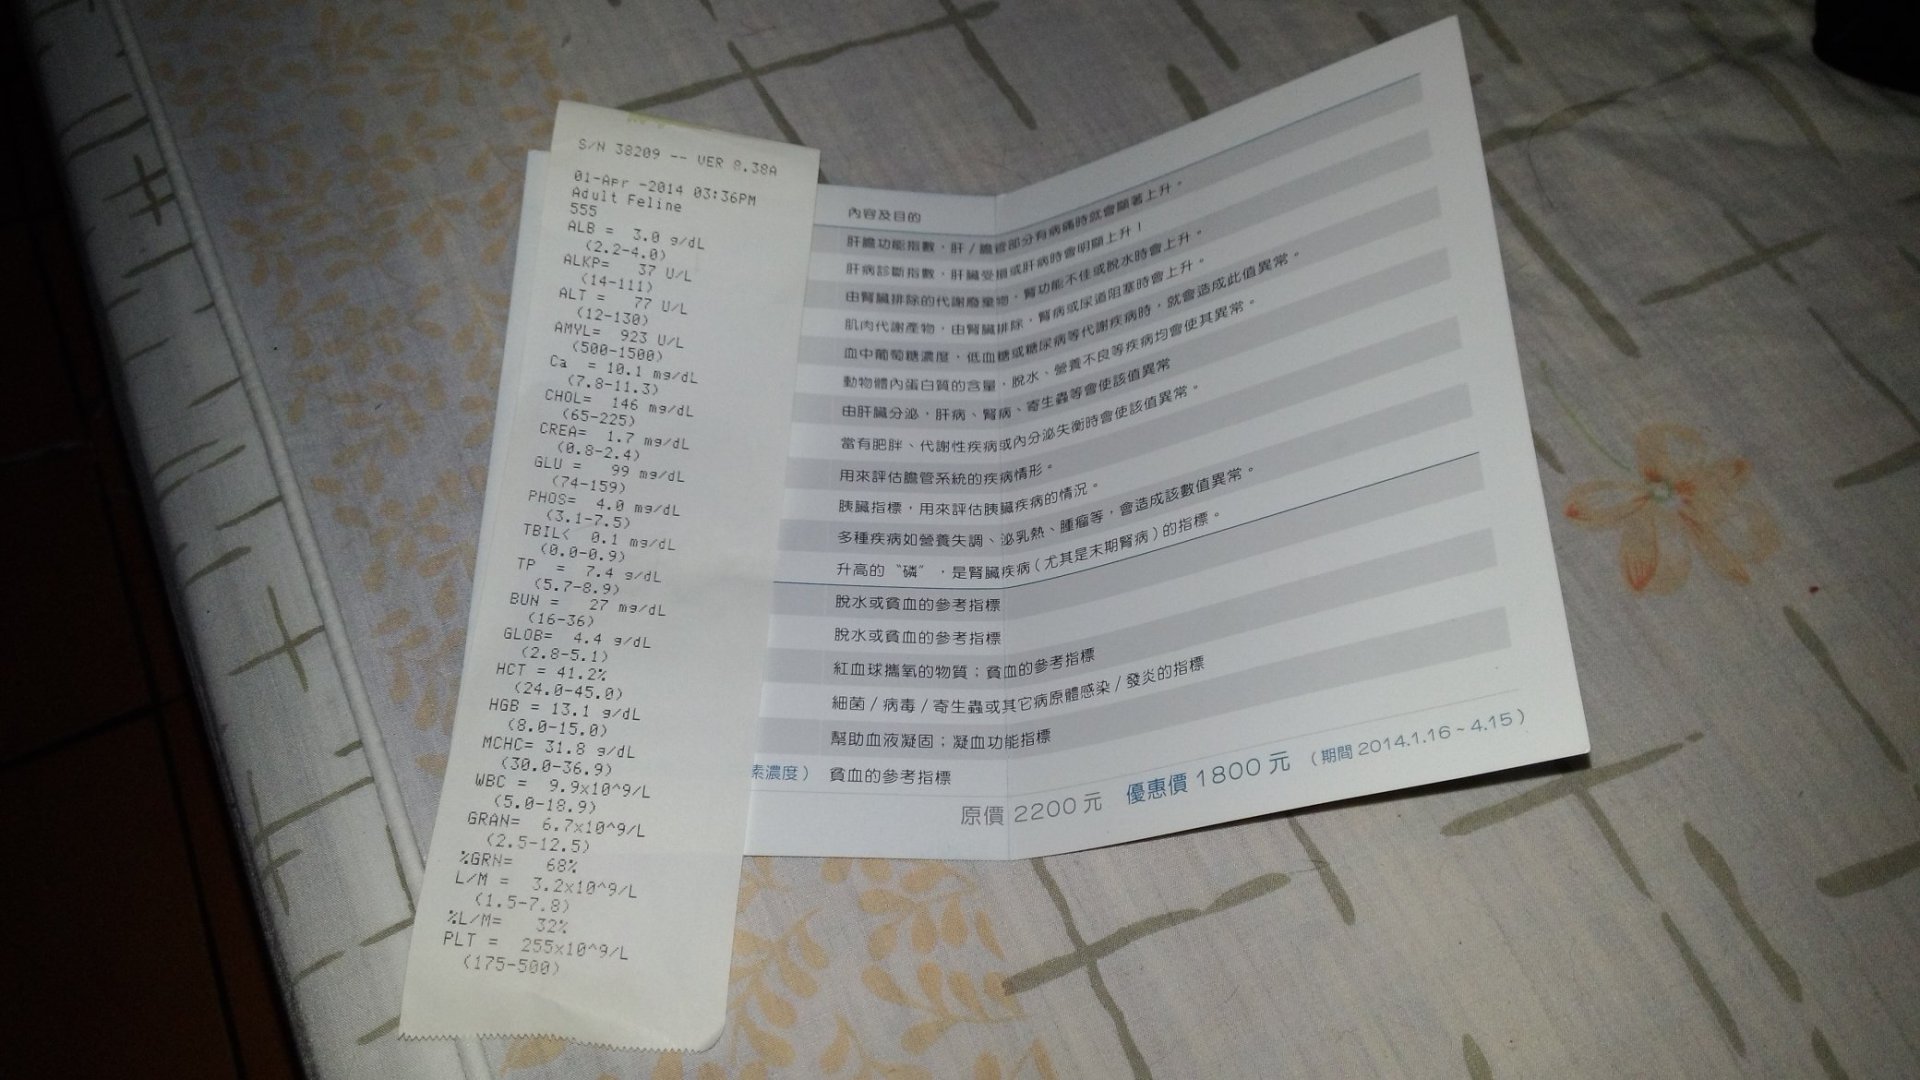 S/N 38209 -- VER 8.38A
01-Apr -2014 03:36PM
Adult Feline
555
ALB = 3.0 g/dL
(2.2-4.0)
ALKP= 37 U/L
(14-111)
ALT = 77 U/L
(12-130)
AMYL= 923 U/L
(500-1500)
Ca = 10.1 mg/dL
(7.8-11.3)
CHOL= 146 mg/dL
(65-225)
CREA= 1.7 mg/dL
(0.8-2.4)
GLU = 99 mg/dL
(74-159)
PHOS= 4.0 mg/dL
(3.1-7.5)
TBIL< 0.1 mg/dL
(0.0-0.9)
TP = 7.4 g/dL
(5.7-8.9)
BUN = 27 mg/dL
(16-36)
GLOB= 4.4 g/dL
(2.8-5.1)
HCT = 41.2%
(24.0-45.0)
HGB = 13.1 g/dL
(8.0-15.0)
MCHC= 31.8 g/dL
(30.0-36.9)
WBC = 9.9x10^9/L
(5.0-18.9)
GRAN= 6.7x10^9/L
(2.5-12.5)
%GRN= 68%
L/M = 3.2x10^9/L
(1.5-7.8)
%L/M= 32%
PLT = 255x10^9/L
(175-500)
內容及目的
肝膽功能指數，肝/膽管部分有病痛時就會顯著上升。
肝病診斷指數，肝臟受損或肝病時會明顯上升！
由腎臟排除的代謝廢棄物，腎功能不佳或脫水時會上升。
肌肉代謝產物，由腎臟排除，腎病或尿道阻塞時會上升。
血中葡萄糖濃度，低血糖或糖尿病等代謝疾病時，就會造成此值異常。
動物體內蛋白質的含量，脫水、營養不良等疾病均會使其異常。
由肝臟分泌，肝病、腎病、寄生蟲等會使該值異常
當有肥胖、代謝性疾病或內分泌失衡時會使該值異常。
用來評估膽管系統的疾病情形。
胰臟指標，用來評估胰臟疾病的情況。
多種疾病如營養失調、泌乳熱、腫瘤等，會造成該數值異常。
升高的“磷”，是腎臟疾病(尤其是末期腎病)的指標。
脫水或貧血的參考指標
脫水或貧血的參考指標
紅血球攜氧的物質；貧血的參考指標
細菌/病毒/寄生蟲或其它病原體感染/發炎的指標
幫助血液凝固；凝血功能指標
素濃度） 貧血的參考指標
原價 2200 元 優惠價 1800 元 （期間 2014.1.16~4.15）